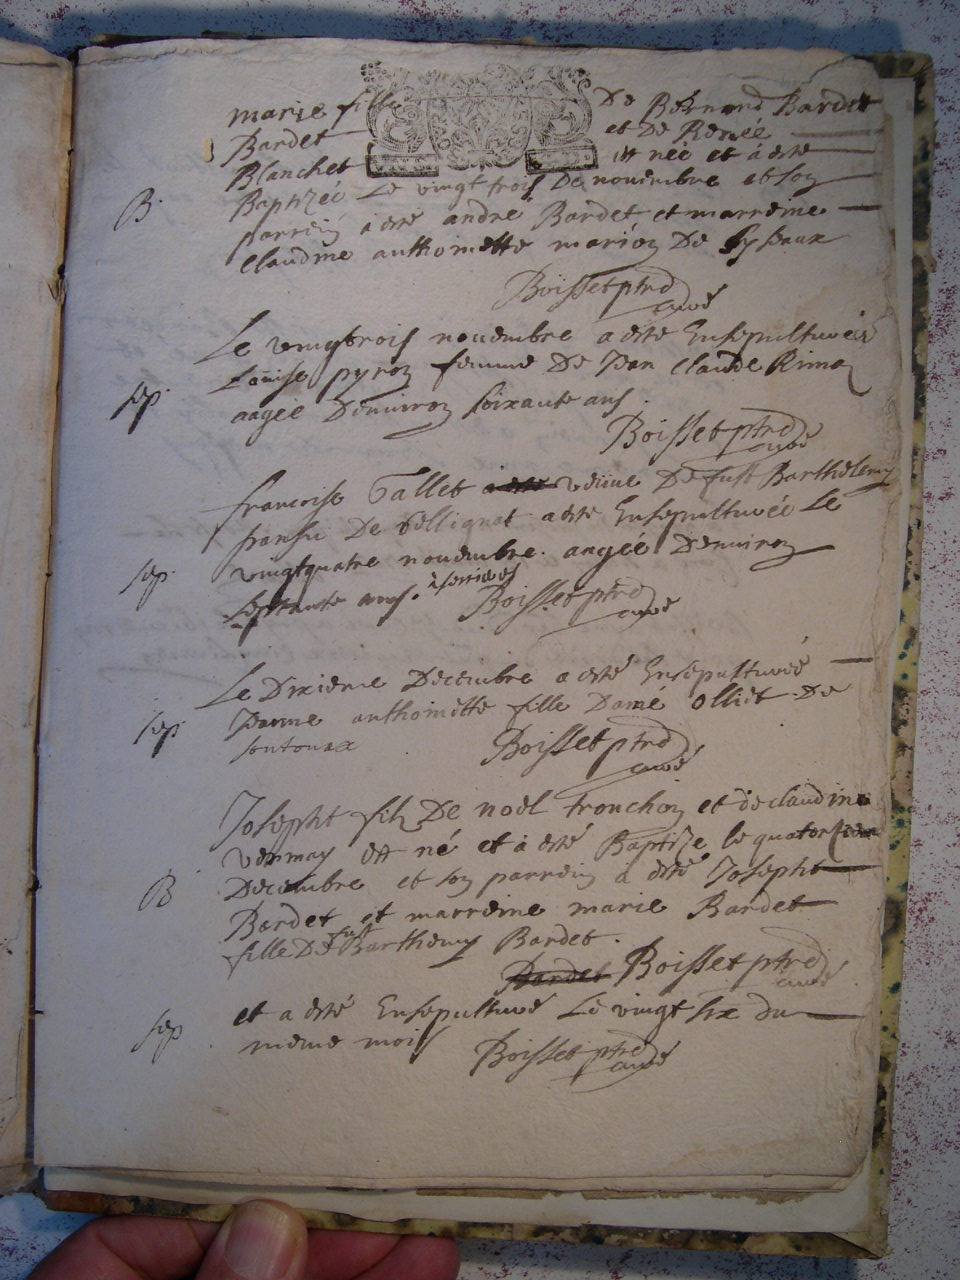 marie fille De Bernard Bardet
Bardet et De Renée
Blanchet est née et à esté
B. Baptizée Le vingt trois De nouembre et son
parrein à esté andré Bardet et marreine
Claudine anthoinette marion De
Boisset ptre curé
Le vingtrois nouembre a esté Ensepulturée
Louise pyron femme De Jean Claude
sep. aagée Denuiron soixante ans.
Boisset ptre curé
francoise Gallet veuue De fust Barthelemy
De a esté Ensepulturée Le
sep. vingtquatre nouembre. aagée Denuiron
septante ans.
Boisset ptre curé
Le Dixieme Decembre a esté Ensepulturée
sep. Jeanne anthoinette fille Damé olliet De
Boisset ptre curé
Joseph filz De noel tronchon et de claudine
est né et à esté Baptize le
B Decembre et son parrein à esté Joseph
Bardet et marreine marie Bardet
fille De fust Barthemy Bardet.
Bardet Boisset ptre curé
sep et a esté Ensepulturé Le vingt six du
meme mois Boisset ptre curé